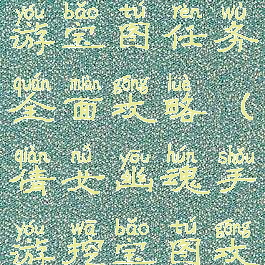 yóu bǎo tú rèn wù
游宝图任务
quán miàn gōng lüè
全面攻略（
qiàn nǚ yōu hún shǒu
倩女幽魂手
yóu wā bǎo tú gōng
游挖宝图攻